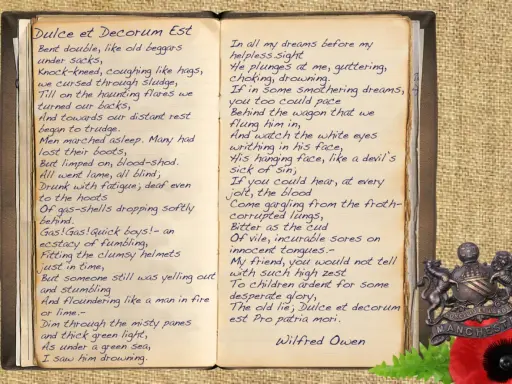 Dulce et Decorum Est
Bent double, like old beggars
under sacks,
Knock-kneed, coughing like hags,
we cursed through sludge,
Till on the haunting flares we
turned our backs,
And towards our distant rest
began to trudge.
Men marched asleep. Many had
lost their boots,
But limped on, blood-shod.
All went lame, all blind;
Drunk with fatigue; deaf even
to the hoots
Of gas-shells dropping softly
behind.
Gas!Gas!Quick boys!- an
ecstasy of fumbling,
Fitting the clumsy helmets
just in time,
But someone still was yelling out
and stumbling
And floundering like a man in fire
or lime.-
Dim through the misty panes
and thick green light,
As under a green sea,
I saw him drowning.
In all my dreams before my
helpless sight
He plunges at me, guttering,
choking, drowning.
If in some smothering dreams,
you too could pace
Behind the wagon that we
flung him in,
And watch the white eyes
writhing in his face,
His hanging face, like a devil's
sick of sin;
If you could hear, at every
jolt, the blood
Come gargling from the froth-
corrupted lungs,
Bitter as the cud
Of vile, incurable sores on
innocent tongues.-
My friend, you would not tell
with such high zest
To children ardent for some
desperate glory,
The old lie; Dulce et decorum
est Pro patria mori.
Wilfred Owen
MANCHESTER